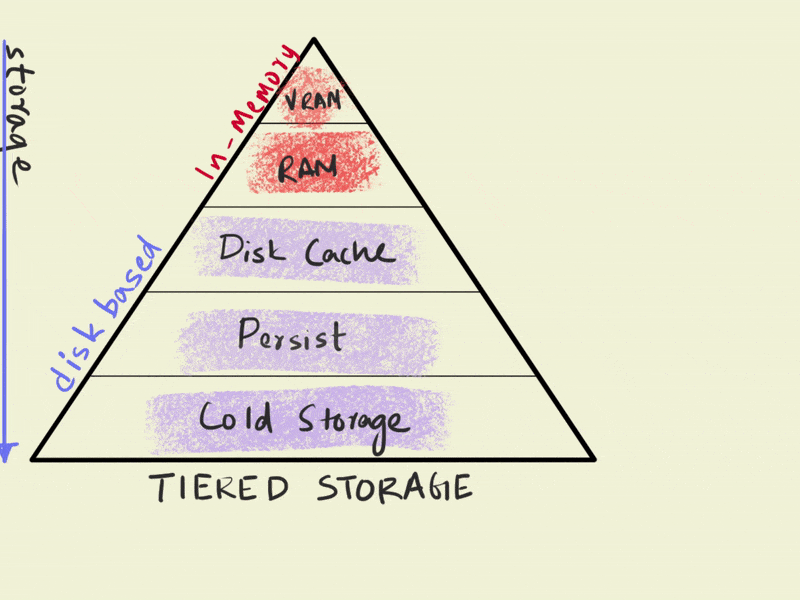 storage
In-Memory
VRAM
RAM
disk based
Disk Cache
Persist
Cold Storage
TIERED STORAGE